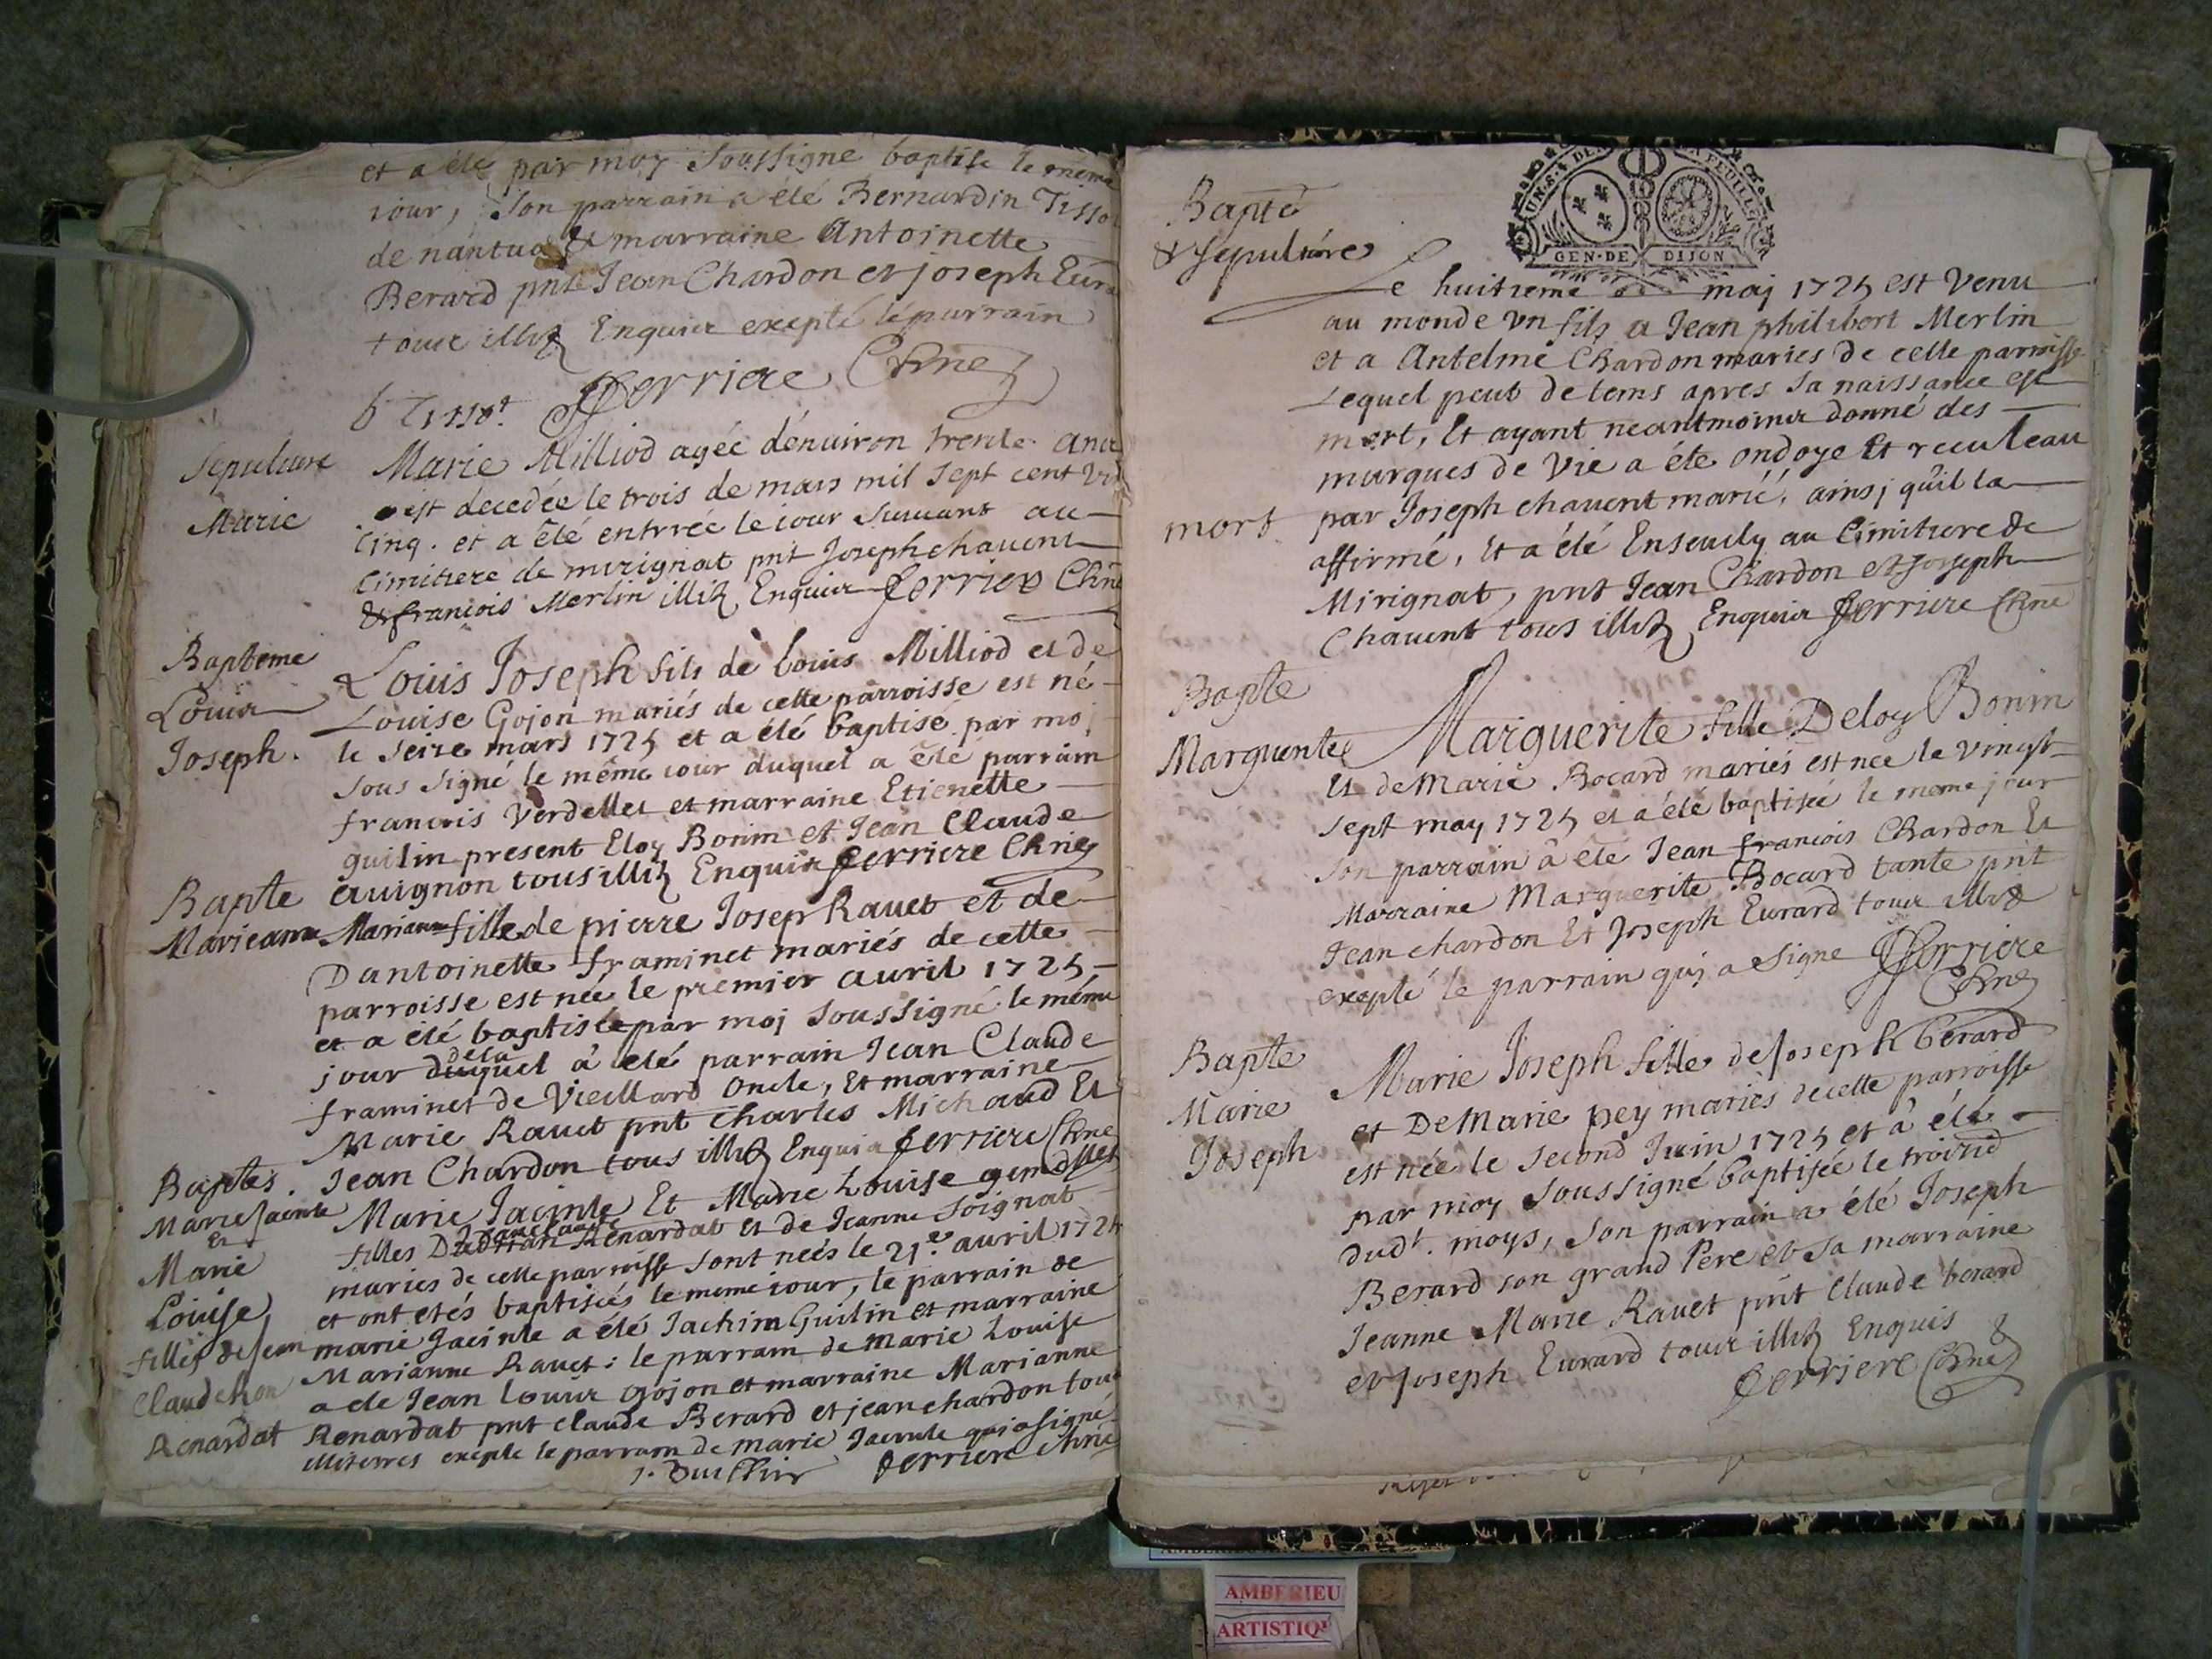 et a été par moy soussigne baptise le même
iour, son parrain a eté Bernardin Tisso
de nantua & marraine Antoinette
Berard pnt Jean Chardon et joseph Eura
tour illit Enquier excepté le parrain
b Tissot fferriere Chne
Sepulture
Marie
Marie Milliod agée dénuiron trente ans
est decedée le trois de mars mil sept cent
cinq. et a été entrrée le iour suiuant au
cimitiere de mirignat pnt Joseph chauent
& francois Merlin illit Enquier fferriere Chne
Bapteme
Louis
Joseph.
Louis Joseph fils de louis Milliod et de
Louise Gojon mariés de cette parroisse est né
le seize mars 1725 et a été baptisé par moj
sous signé le même iour duquel a été parrain
francois Verdellet et marraine Etienette
guilin present Eloy Bonin et Jean Claude
auignon tous illit Enquis fferriere Chne
Bapte
Marieanne
Marianne fille de pierre Josep Rauet et de
Dantoinette framinet mariés de cette
parroisse est née le premier auril 1725
et a été baptisée par moj soussigné le même
jour duquel a été parrain Jean Claude
dela
framinet de Vieillard oncle, Et marraine
Marie Rauet pnt Charles Michaud Et
Jean Chardon tous illit Enquis fferriere Chne
Baptes.
Marie Jacinte
Et
Marie
Louise
filles de Jean
Claude
Renardat
Marie Jacinte Et Marie Louise
filles Dadrian Renardat et de Jeanne Soignat
Jeanclaude
maries de cette parroisse sont neés le 21e avril 1725
et ont etés baptisées le meme iour, le parrain de
marie Jacinte a été Jachim Guilin et marraine
Marianne Rauet: le parrain de marie Louise
a ete Jean Louis Gojon et marraine Marianne
Renardat pnt claude Berard et jean chardon tous
illiterés exepte le parrain de marie Jacinte qui a signé
fferriere Chne
Bapte
& sepulture
mort
UN.S.4 DEN
LA FEUILLE
GEN·DE DIJON
Le huitieme de maj 1725 est Venu
au monde vn fils a Jean philibert Merlin
et a Antelme Chardon maries de cette parroisse
Lequel peut de tems apres sa naissance est
mort, Et ayant neantmoins donné des
marques de Vie a été ondoye Et receu leau
par Joseph chauent marié, ainsj quil la
affirmé, Et a été Enseuely au Cimitiere de
Mirignat, pnt Jean Chardon et Joseph
Chauent tous illit Enquis fferriere Chne
Bapte
Marguerite
Marguerite fille Deloy Bonin
Et de Marie Bocard mariés est nee le vingt
sept may 1725 et a été baptisée le meme jour
son parrain a eté Jean francois Chardon Et
Marraine Marguerite Bocard tante pnt
Jean chardon Et Joseph Eurard tous illit
exepté le parrain quj a signe fferriere
Chne
Bapte
Marie
Joseph
Marie Joseph fille de Joseph berard
et De Marie pey mariés de cette parroisse
est née le second Juin 1725 et a été
par moy soussigné baptisée le trois
dudt. moys, son parrain a été Joseph
Berard son grand Pere et sa marraine
Jeanne Marie Rauet pnt Claude berard
et Joseph Eurard tous illit Enquis
fferriere Chne
AMBERIEU
ARTISTIQU